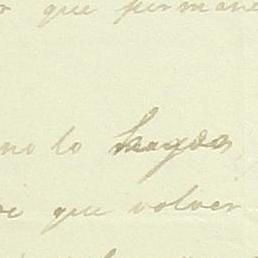 que perman
no lo hagas
que volver